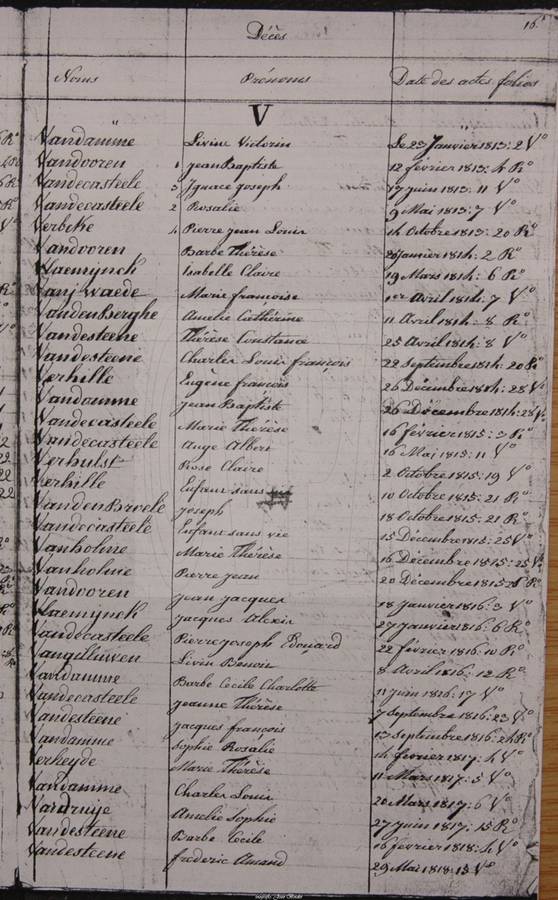 16
Décès
Noms Prénoms Date des actes folios
V
Vandamme Livine Victorin Le 23 Janvier 1813: 2 Vº
Vandooren 1 jean Baptiste 12 février 1813: 4 Rº
Vandecasteele 3 Ignace joseph 17 juin 1813: 11 Vº
Vandecasteele 2 Rosalie 9 Mai 1813: 7 Vº
Verbeke 4 Pierre jean Louis 14 Octobre 1813: 20 Rº
Vandooren Barbe Thérèse janvier 1814: 2 Rº
Vaemynck Isabelle Claire 19 Mars 1814: 6 Rº
Marie françoise 1er Avril 1814: 7 Vº
VandenBerghe Amelie Cathérine 11 Avril 1814: 8 Rº
Vandesteene Thérèse Constance 25 Avril 1814: 8 Vº
Vandesteene Charles Louis françois 22 Septembre 1814: 20 Rº
Verhille Eugène francois 26 Décembre 1814: 28 Vº
Vandamme jean Baptiste 26 Décembre 1814: 28 Vº
Vandecasteele Marie Thérèse 16 février 1815: 3 Rº
Vandecasteele Ange Albert 16 Mai 1815: 11 Vº
Verhulst Rose Claire 2 Octobre 1815: 19 Vº
Verhille Enfant sans 10 Octobre 1815: 21 Rº
VandenBroele joseph 18 Octobre 1815: 21 Rº
Vandecasteele Enfant sans vie 15 Décembre 1815: 25 Vº
Vanholme Marie Thérèse 16 Décembre 1815: 25 Vº
Vanholme Pierre jean 20 Décembre 1815: Rº
Vandooren jean jacques 18 Janvier 1816: 3 Vº
Vaemynck jacques Alexis 27 Janvier 1816: 6 Rº
Vandecasteele Pierre joseph Edouard 22 février 1816: 10 Rº
Livin Benoit 8 Avril 1816: 12 Rº
Vandamme Barbe Cecile Charlotte 11 juin 1816: 17 Vº
Vandecasteele jeanne Thérèse 7 Septembre 1816: 23 Vº
Vandesteene jacques françois 13 Septembre 1816: 24 Rº
Vandamme sophie Rosalie 14 février 1817: 4 Vº
Verheyde Marie Thérèse 11 Mars 1817: 5 Vº
Vandamme Charles Louis 20 Mars 1817: 6 Vº
Amelie sophie 27 juin 1817: 15 Rº
Vandesteene Barbe Cecile 16 février 1818: 4 Vº
Vandesteene frederic Amand 29 Mai 1818: 15 Vº